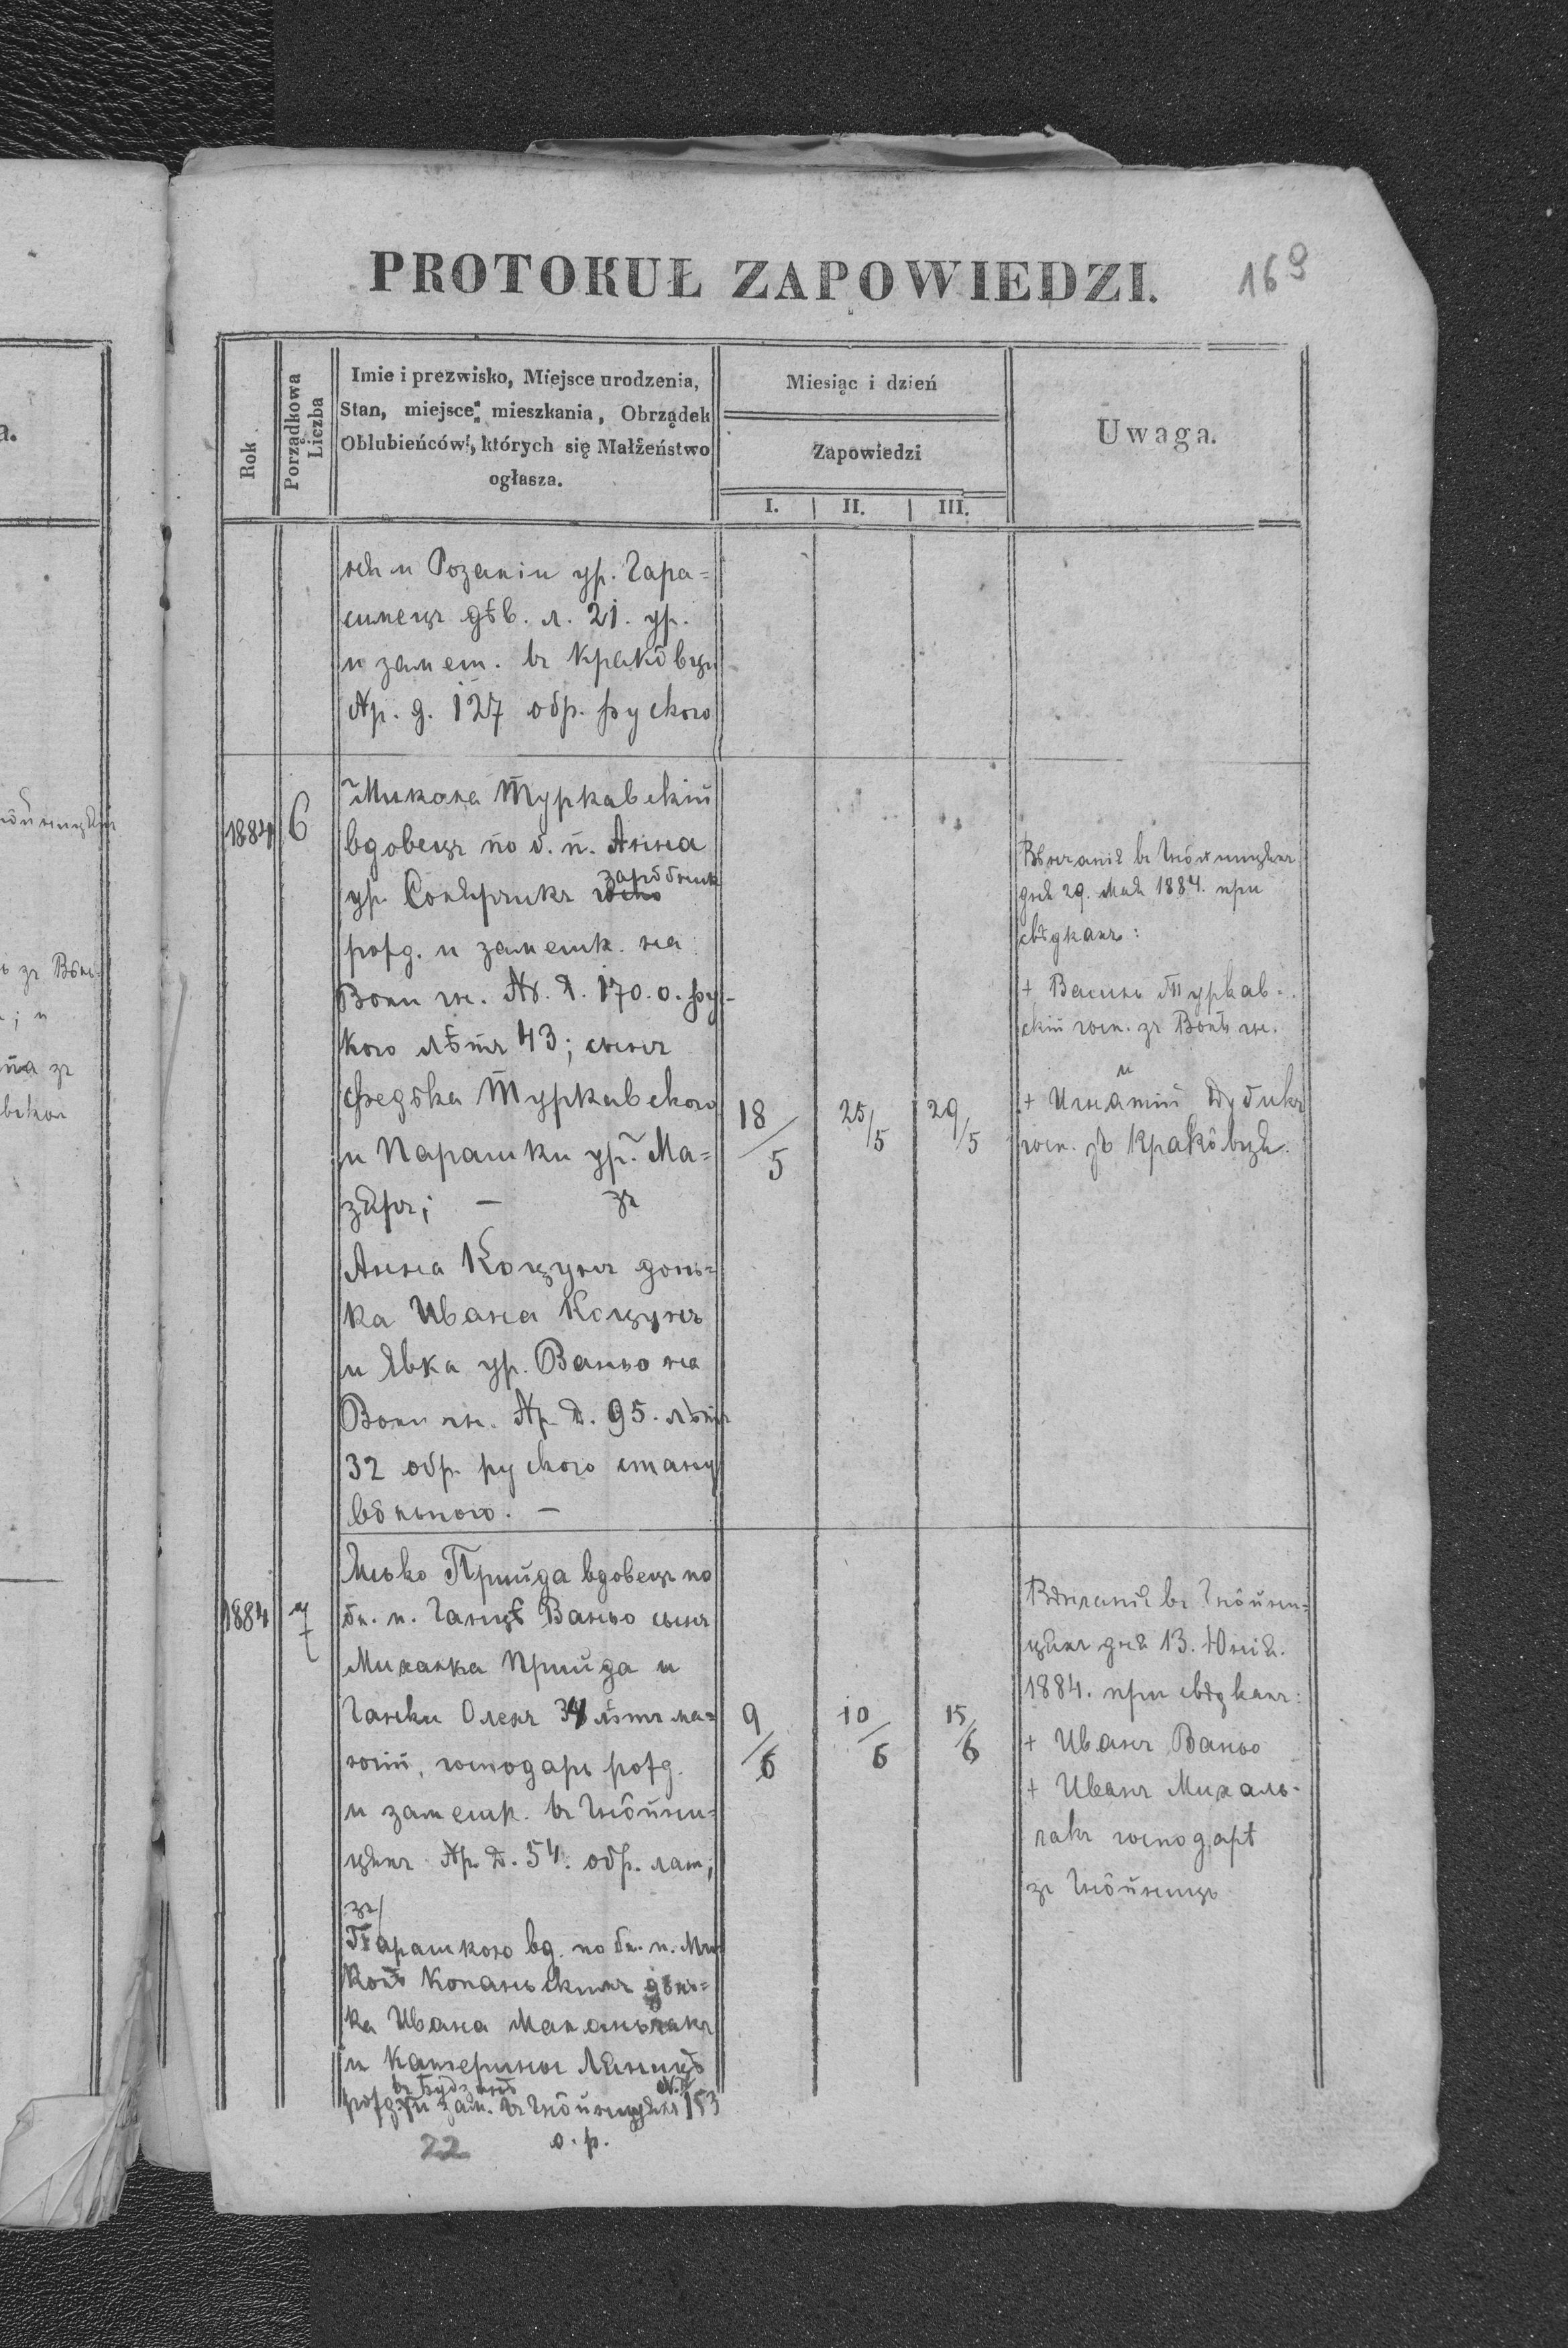 PROTOKUŁ ZAPOWIEDZI.
169
Rok
Porządkowa Liczba
Imie i prezwisko, Miejsce urodzenia,
Stan, miejsce mieszkania, Obrządek
Oblubieńców, których się Małżeństwo
ogłasza.
Miesiąc i dzień
Zapowiedzi
I. II. III.
Uwaga.
и Розалiи ур. Гара=
симецъ дѣв. л. 21. ур.
и замеш. въ Кракôвци
Нр. д. 127 обр. руского
1884 6
Микола Туркавскiй
вдовецъ по б. п. Анна
ур. зарôбник
рожд. и замешк. на
Воли гн. Нр. Д. 170. о. рус-
кого лѣтъ 43; сынъ
Федька Туркавского
и Парашки ур. Ма=
зяръ; — зъ
Анна Коцунъ донь=
ка Ивана Коцунъ
и Явка ур. Ваньо на
Воли гн. Нр. Д. 95. лѣтъ
32 обр. руского стану
вôльного. —
18/5 25/5 29/5
Вѣнчанiя въ Гнôйницяхъ
дня 29. Мая 1884. при
свѣдкахъ:
+ Василь Туркав-
скiй госп. зъ Волѣ гн.
и
+ Игнатiй Дубикъ
госп. зъ Кракôвця.
1884 7
Илько Прийда вдовецъ по
бл. п. Ганцѣ Ваньо сынъ
Михалка Прийда и
Ганьки Олехъ 34 лѣтъ ма=
ючiй, господарь рожд.
и замешк. въ Гнôйни=
цяхъ Нр. Д. 54. обр. лат;
зъ
Парашкою вд. по бл. п. Ми
колѣ Копаньскимъ донь=
ка Ивана Михальчакъ
и Катерины
рожд. и зам. въ Гнôйницяхъ N. 153
о. р.
9/6 10/6 15/6
Вѣнчанiя въ Гнôйни=
цяхъ дня 13. Юнiя.
1884. при свѣдкахъ:
+ Иванъ Ваньо
+ Иванъ Михаль-
чакъ господарѣ
зъ Гнôйниць
22